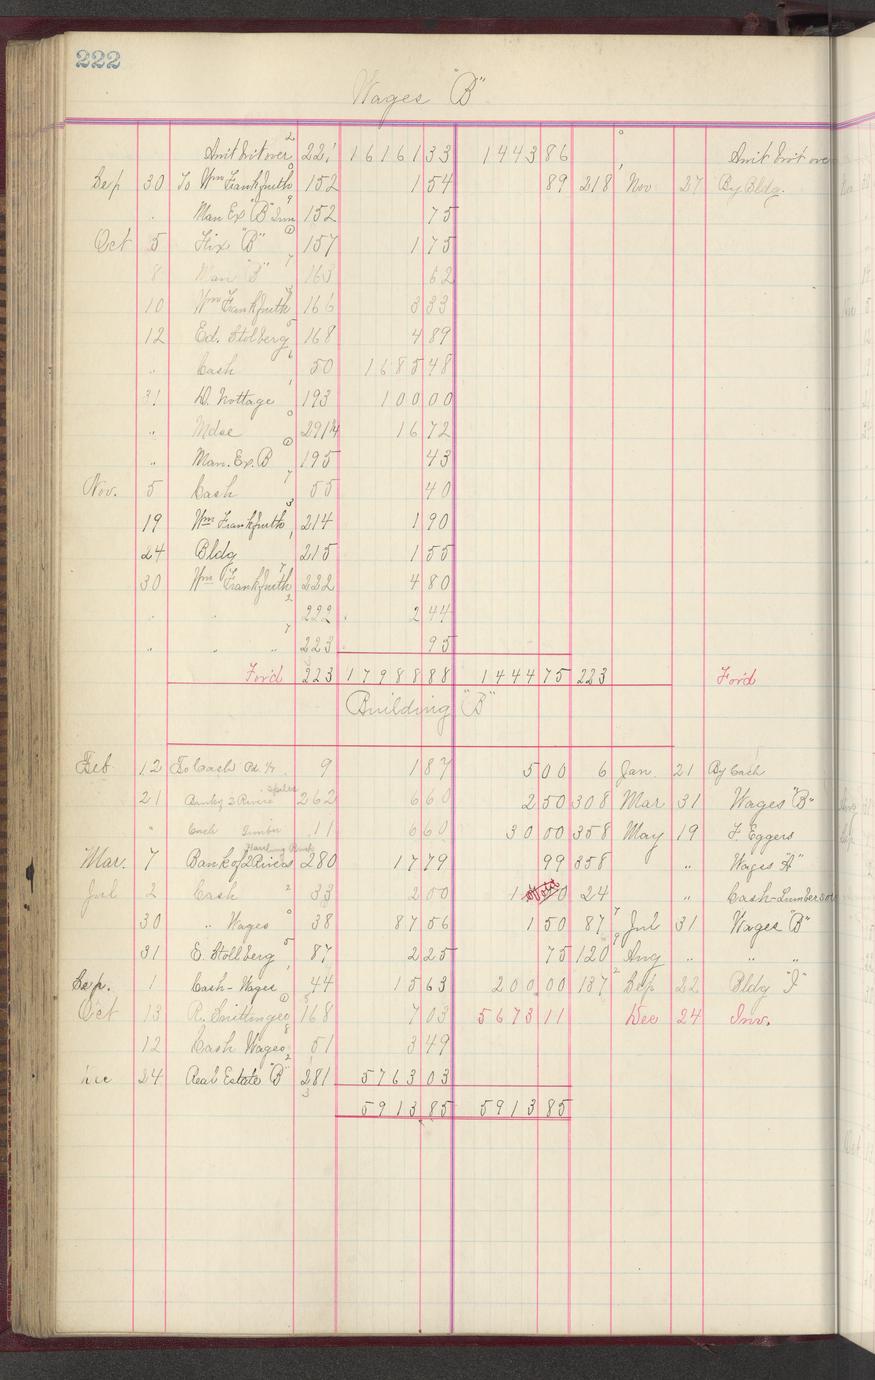 222
Wages "B"
Amt brt over 221 16161 33 1443 86 Amt brt over
Sep 30 To Wm Frankfurth 152 1 54 89 218 Nov 27 By Bldg.
" Man Ex "B" 152 75
Oct 5 Fix "B" 157 1 75
8 Man "B" 163 62
10 Wm Frankfurth 166 3 33
12 Ed. Stolberg 168 4 89
" Cash 50 1685 48
31 D. Nottage 193 100 00
" Mdse 16 72
" Man. Ex. B 195 43
Nov. 5 Cash 55 40
19 Wm Frankfurth 214 1 90
24 Bldg 215 1 55
30 Wm Frankfurth 222 4 80
" " 222 2 44
" " " 223 95
For'd 223 17988 88 1444 75 223 For'd
Building "B"
Feb 12 To Cash 9 1 87 5 00 6 Jan 21 By Cash
21 262 6 60 2 50 308 Mar 31 Wages "B"
" Cash Lumber 11 6 60 30 00 358 May 19 F. Eggers
Mar. 7 Bank of 2 Rivers 280 17 79 99 358 " Wages "A"
Jul 2 Cash 33 2 00 Void 24 " Cash-Lumber
30 " Wages 38 87 56 1 50 87 Jul 31 Wages "B"
31 E. Stollberg 87 2 25 75 120 Aug " " "
Sep. 1 Cash - Wages 44 15 63 200 00 137 Sep 22 Bldg "I"
Oct 13 168 7 03 5673 11 Dec 24 Inv.
12 Cash Wages 51 3 49
Dec 24 Real Estate "B" 281 5763 03
5913 85 5913 85